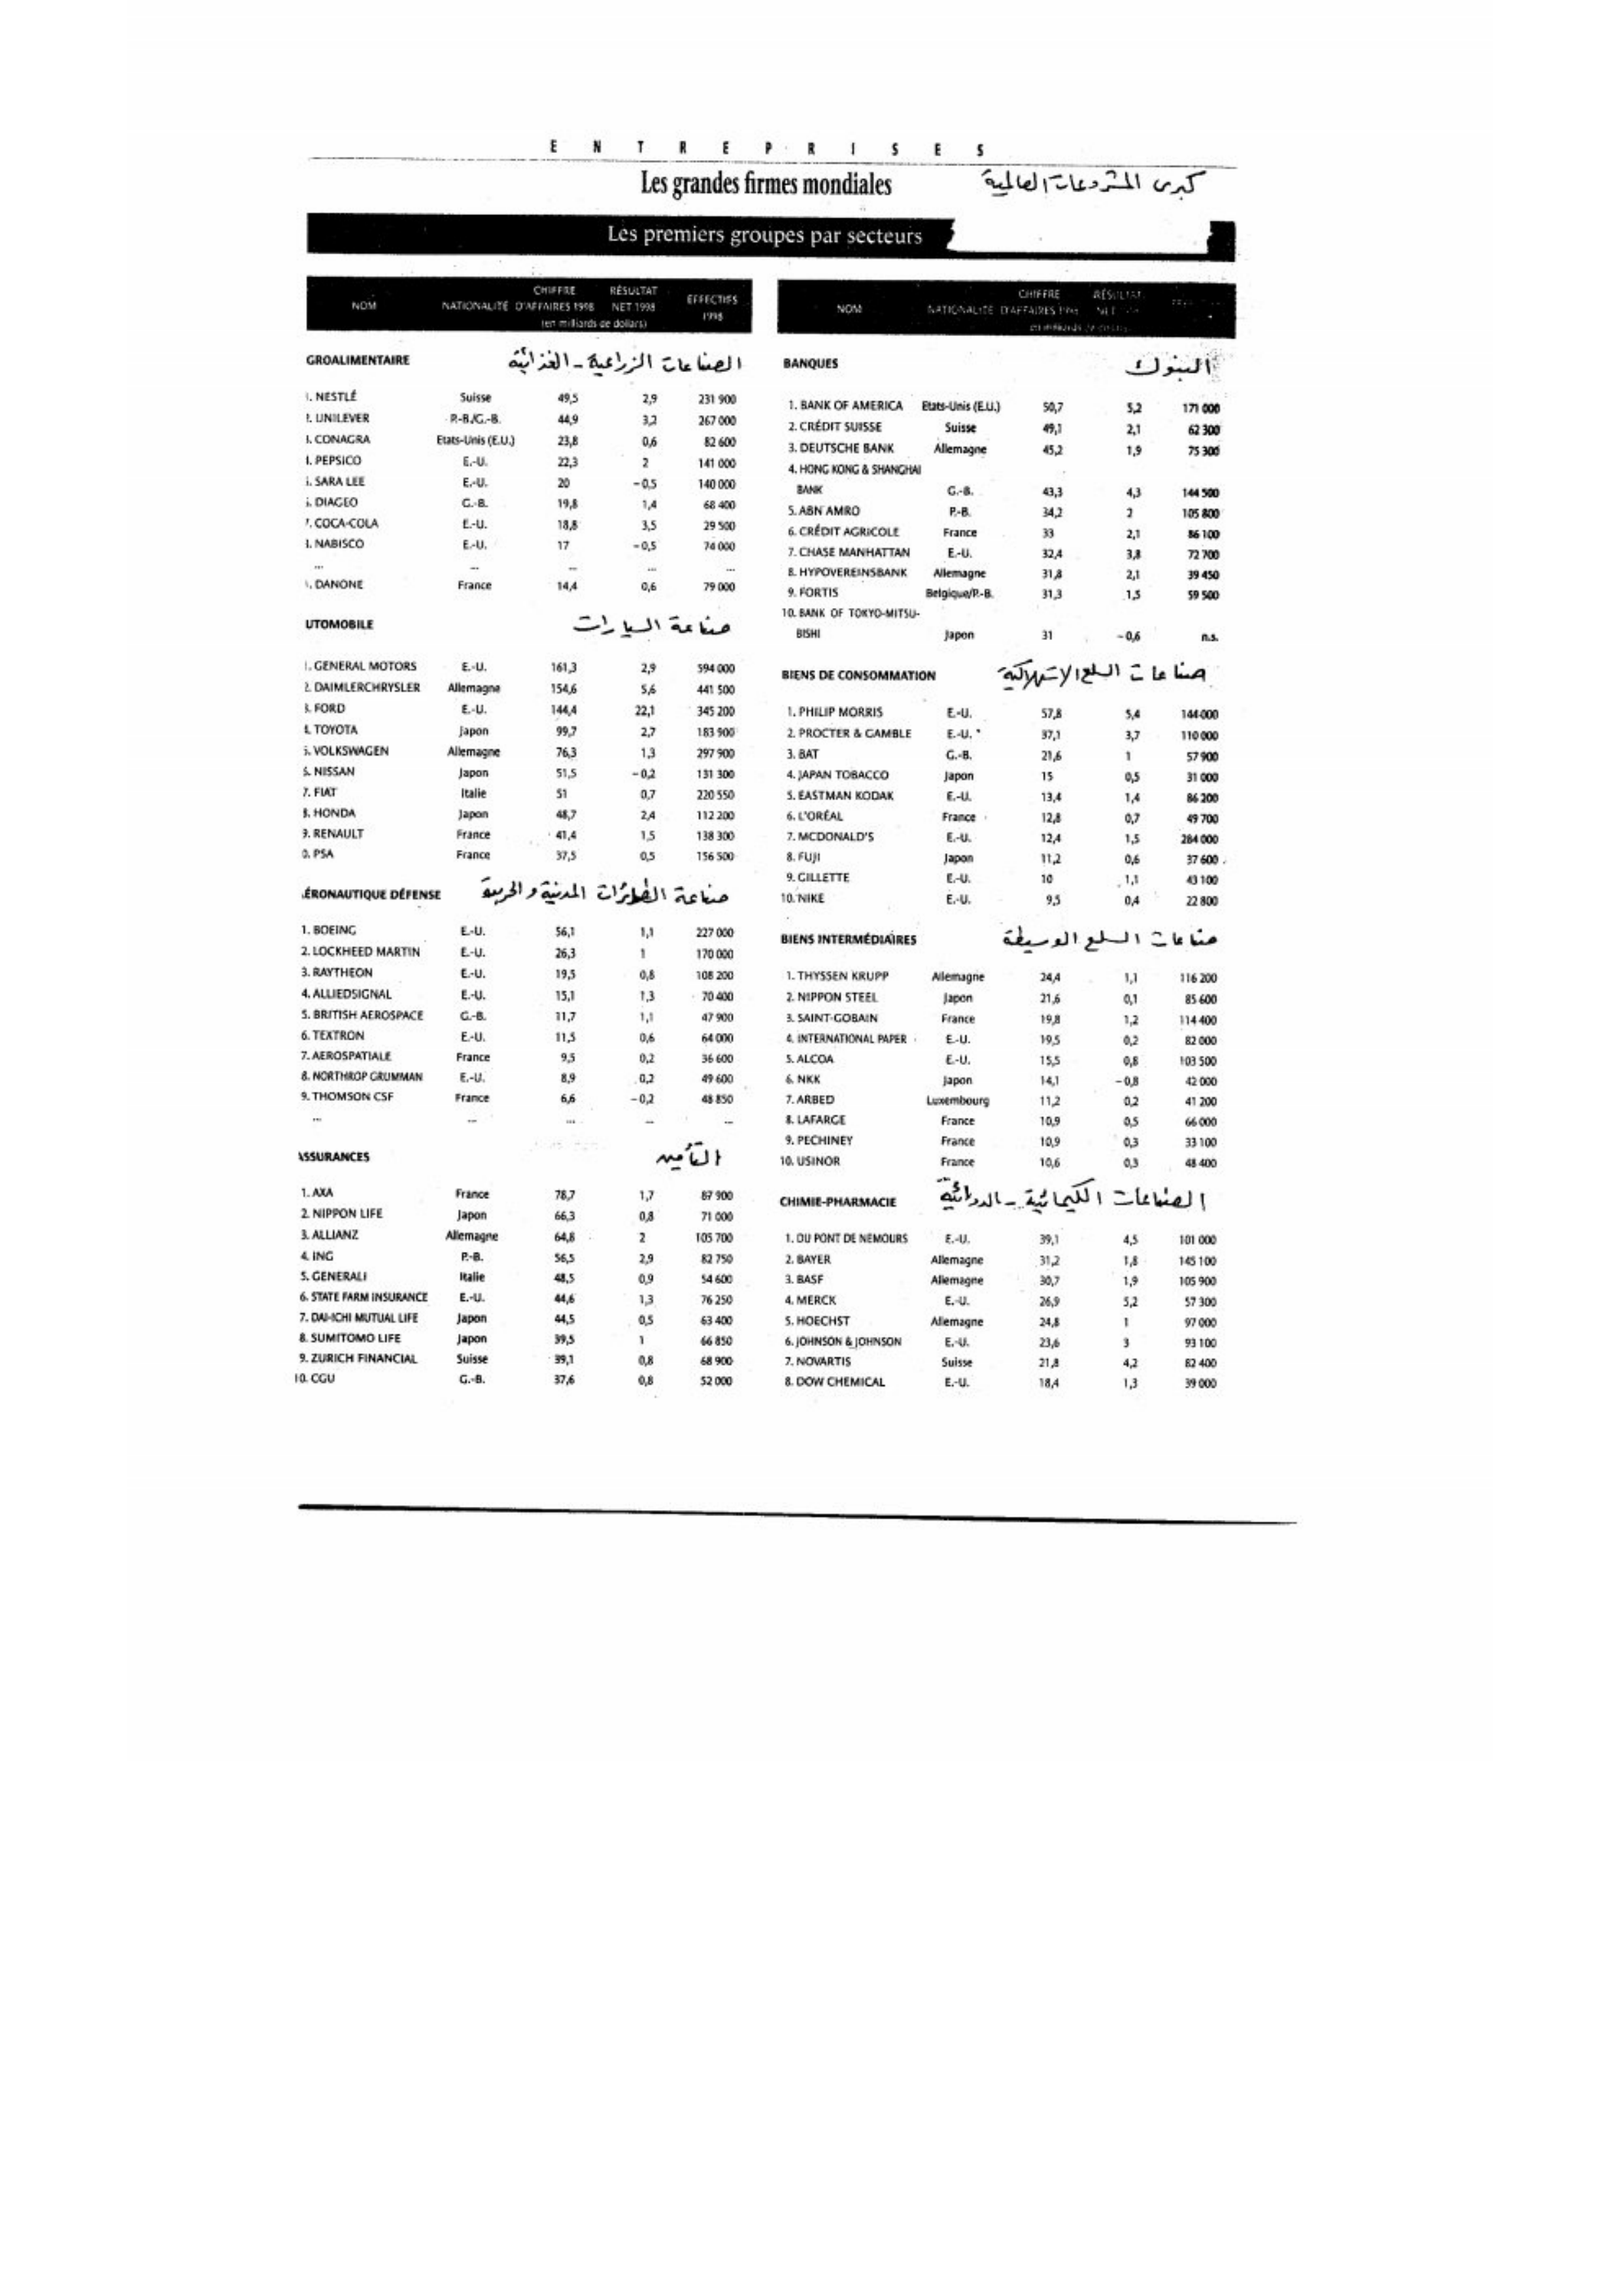 E N T R E P R I S E S
Les grandes firmes mondiales كبرى المشروعات العالمية
Les premiers groupes par secteurs
NOM NATIONALITÉ CHIFFRE D'AFFAIRES 1998 RÉSULTAT NET 1998 EFFECTIFS 1998
(en milliards de dollars)
GROALIMENTAIRE الصناعات الزراعية - الغذائية
. NESTLÉ Suisse 49,5 2,9 231 900
. UNILEVER P.-B./G.-B. 44,9 3,2 267 000
. CONAGRA Etats-Unis (E.U.) 23,8 0,6 82 600
. PEPSICO E.-U. 22,3 2 141 000
. SARA LEE E.-U. 20 -0,5 140 000
. DIAGEO G.-B. 19,8 1,4 68 400
. COCA-COLA E.-U. 18,8 3,5 29 500
. NABISCO E.-U. 17 -0,5 74 000
... ... ... ... ...
. DANONE France 14,4 0,6 79 000
UTOMOBILE صناعة السيارات
. GENERAL MOTORS E.-U. 161,3 2,9 594 000
2. DAIMLERCHRYSLER Allemagne 154,6 5,6 441 500
3. FORD E.-U. 144,4 22,1 345 200
4. TOYOTA Japon 99,7 2,7 183 900
5. VOLKSWAGEN Allemagne 76,3 1,3 297 900
6. NISSAN Japon 51,5 -0,2 131 300
7. FIAT Italie 51 0,7 220 550
8. HONDA Japon 48,7 2,4 112 200
9. RENAULT France 41,4 1,5 138 300
0. PSA France 37,5 0,5 156 500
ÉRONAUTIQUE DÉFENSE صناعة الطائرات المدنية والحربية
1. BOEING E.-U. 56,1 1,1 227 000
2. LOCKHEED MARTIN E.-U. 26,3 1 170 000
3. RAYTHEON E.-U. 19,5 0,8 108 200
4. ALLIEDSIGNAL E.-U. 15,1 1,3 70 400
5. BRITISH AEROSPACE G.-B. 11,7 1,1 47 900
6. TEXTRON E.-U. 11,5 0,6 64 000
7. AEROSPATIALE France 9,5 0,2 36 600
8. NORTHROP GRUMMAN E.-U. 8,9 0,2 49 600
9. THOMSON CSF France 6,6 -0,2 48 850
... ... ... ... ...
ASSURANCES التأمين
1. AXA France 78,7 1,7 87 900
2. NIPPON LIFE Japon 66,3 0,8 71 000
3. ALLIANZ Allemagne 64,8 2 105 700
4. ING P.-B. 56,5 2,9 82 750
5. GENERALI Italie 48,5 0,9 54 600
6. STATE FARM INSURANCE E.-U. 44,6 1,3 76 250
7. DAI-ICHI MUTUAL LIFE Japon 44,5 0,5 63 400
8. SUMITOMO LIFE Japon 39,5 1 66 850
9. ZURICH FINANCIAL Suisse 39,1 0,8 68 900
10. CGU G.-B. 37,6 0,8 52 000
NOM NATIONALITÉ CHIFFRE D'AFFAIRES RÉSULTAT NET
BANQUES البنوك
1. BANK OF AMERICA Etats-Unis (E.U.) 50,7 5,2 171 000
2. CRÉDIT SUISSE Suisse 49,1 2,1 62 300
3. DEUTSCHE BANK Allemagne 45,2 1,9 75 300
4. HONG KONG & SHANGHAI
BANK G.-B. 43,3 4,3 144 500
5. ABN AMRO P.-B. 34,2 2 105 800
6. CRÉDIT AGRICOLE France 33 2,1 86 100
7. CHASE MANHATTAN E.-U. 32,4 3,8 72 700
8. HYPOVEREINSBANK Allemagne 31,8 2,1 39 450
9. FORTIS Belgique/P.-B. 31,3 1,5 59 500
10. BANK OF TOKYO-MITSU-
BISHI Japon 31 -0,6 n.s.
BIENS DE CONSOMMATION صناعات السلع الاستهلاكية
1. PHILIP MORRIS E.-U. 57,8 5,4 144 000
2. PROCTER & GAMBLE E.-U. 37,1 3,7 110 000
3. BAT G.-B. 21,6 1 57 900
4. JAPAN TOBACCO Japon 15 0,5 31 000
5. EASTMAN KODAK E.-U. 13,4 1,4 86 200
6. L'ORÉAL France 12,8 0,7 49 700
7. MCDONALD'S E.-U. 12,4 1,5 284 000
8. FUJI Japon 11,2 0,6 37 600
9. GILLETTE E.-U. 10 1,1 43 100
10. NIKE E.-U. 9,5 0,4 22 800
BIENS INTERMÉDIAIRES صناعات السلع الوسيطة
1. THYSSEN KRUPP Allemagne 24,4 1,1 116 200
2. NIPPON STEEL Japon 21,6 0,1 85 600
3. SAINT-GOBAIN France 19,8 1,2 114 400
4. INTERNATIONAL PAPER E.-U. 19,5 0,2 82 000
5. ALCOA E.-U. 15,5 0,8 103 500
6. NKK Japon 14,1 -0,8 42 000
7. ARBED Luxembourg 11,2 0,2 41 200
8. LAFARGE France 10,9 0,5 66 000
9. PECHINEY France 10,9 0,3 33 100
10. USINOR France 10,6 0,3 48 400
CHIMIE-PHARMACIE الصناعات الكيمائية - الدوائية
1. DU PONT DE NEMOURS E.-U. 39,1 4,5 101 000
2. BAYER Allemagne 31,2 1,8 145 100
3. BASF Allemagne 30,7 1,9 105 900
4. MERCK E.-U. 26,9 5,2 57 300
5. HOECHST Allemagne 24,8 1 97 000
6. JOHNSON & JOHNSON E.-U. 23,6 3 93 100
7. NOVARTIS Suisse 21,8 4,2 82 400
8. DOW CHEMICAL E.-U. 18,4 1,3 39 000